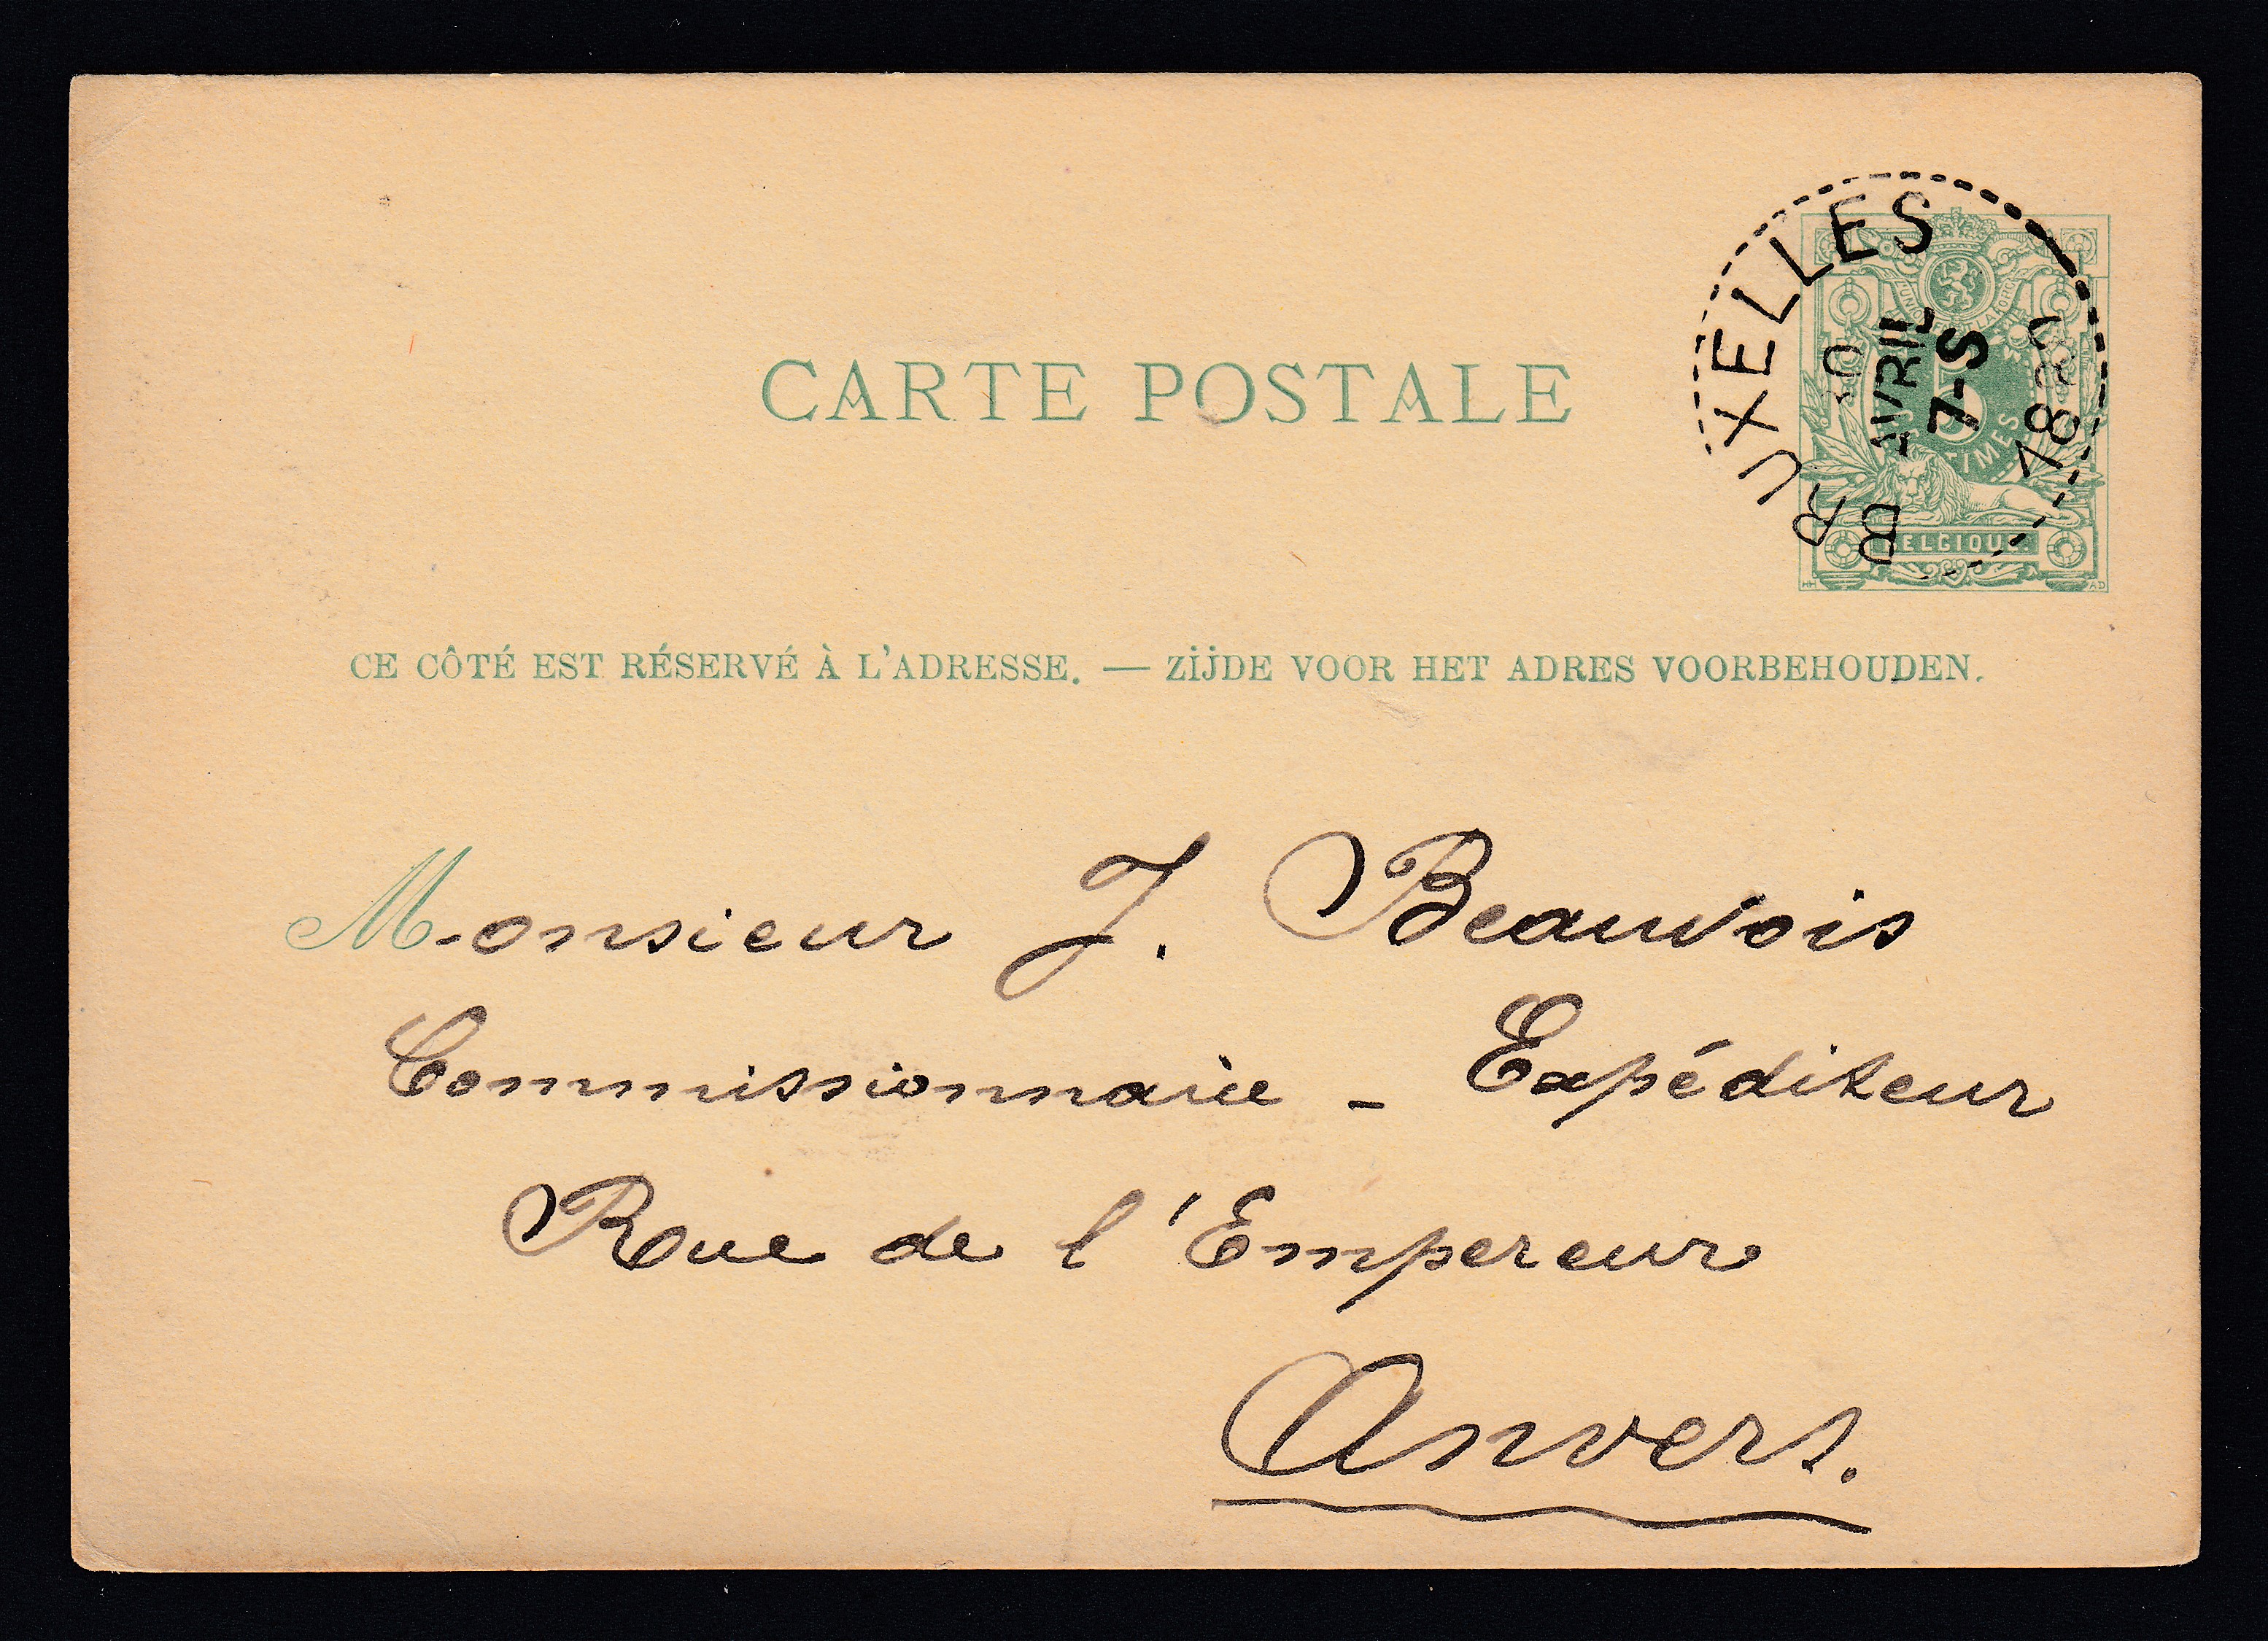 CARTE POSTALE
BRUXELLES
AVRIL
7-S
BELGIQUE
CE CÔTÉ EST RÉSERVÉ À L'ADRESSE. — ZIJDE VOOR HET ADRES VOORBEHOUDEN.
Monsieur J. Beauvois
Commissionnaire - Expéditeur
Rue de l'Empereur
Anvers.